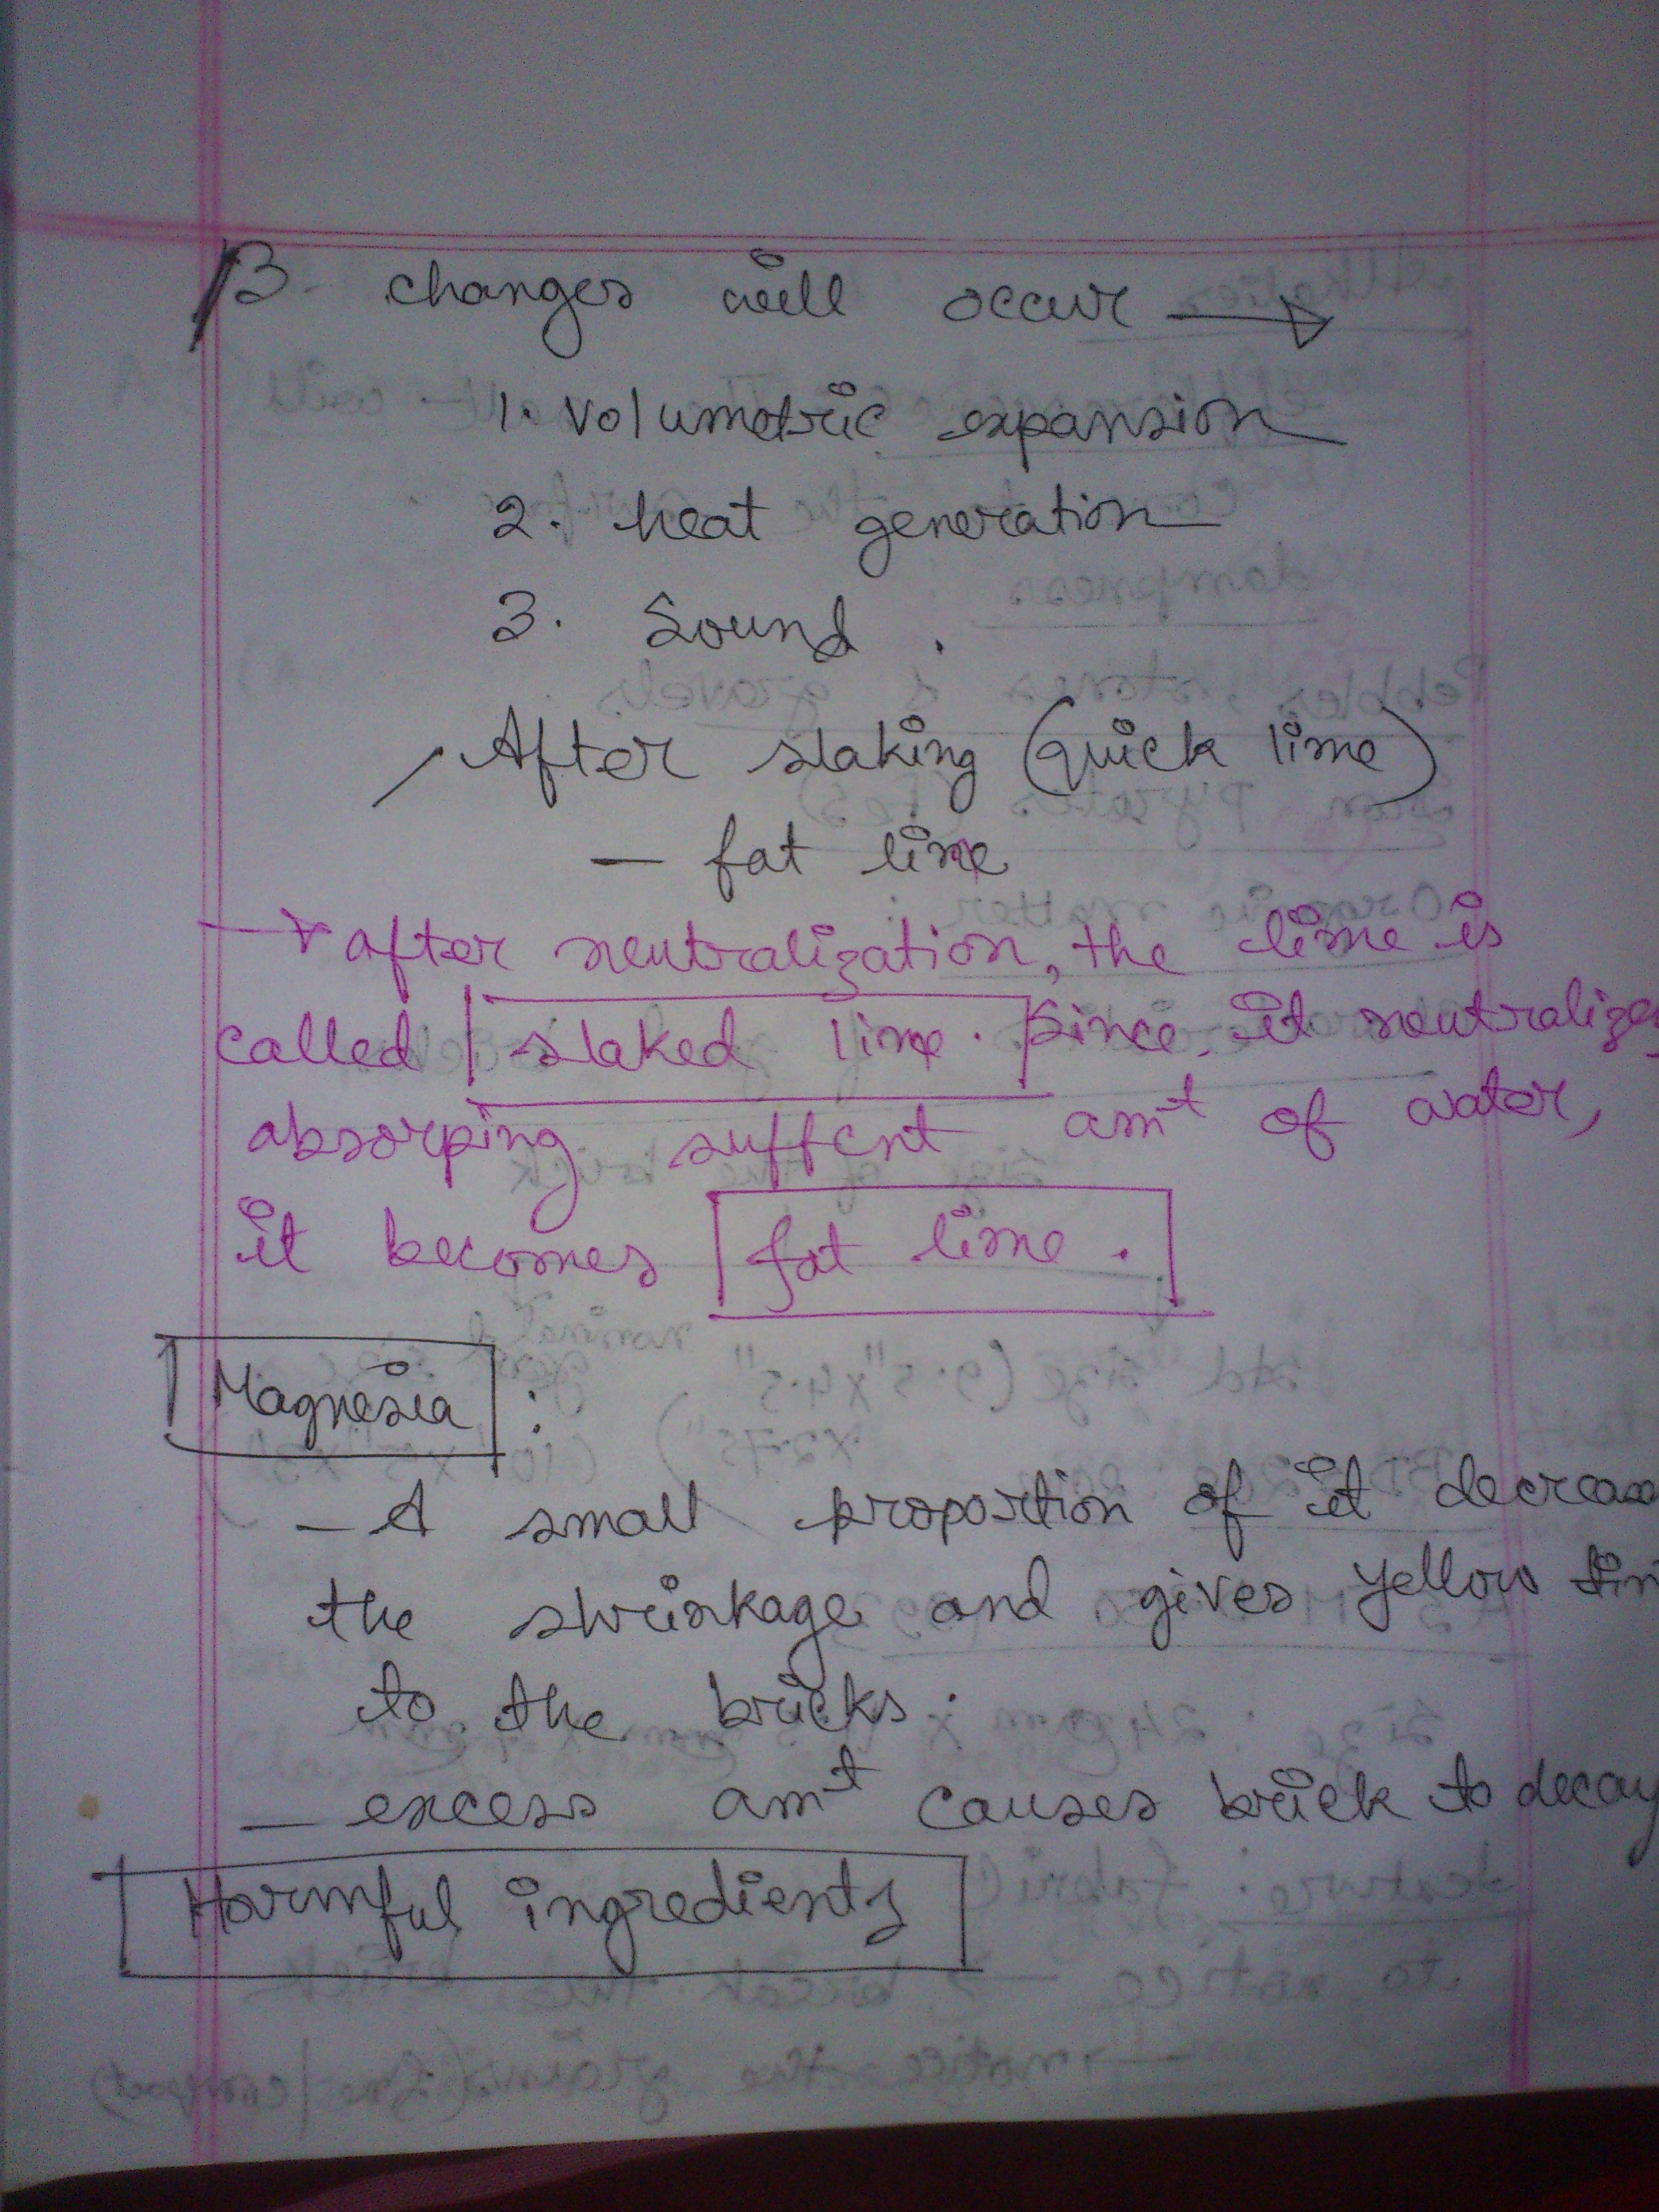 3 changes will occur →
1. Volumetric expansion
2. heat generation
3. Sound.
After slaking (quick lime)
— fat lime
→ after neutralization, the lime is
called slaked lime. Since, it neutralizes
absorping suffcnt amt of water,
it becomes fat lime.
Magnesia :
— A small proportion of it decreas
the shrinkage and gives yellow tin
to the bricks.
— excess amt causes brick to decay
Harmful ingredients